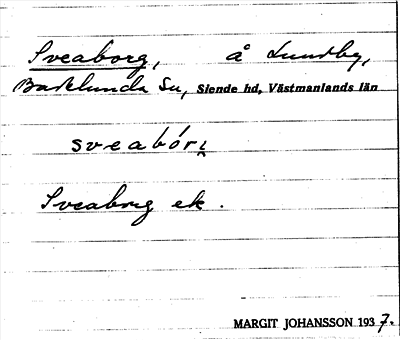 Sveaborg, å Lundby,
Badelunda Sn, Siende hd, Västmanlands län
sveabórj
Sveaborg ek.
MARGIT JOHANSSON 1937.